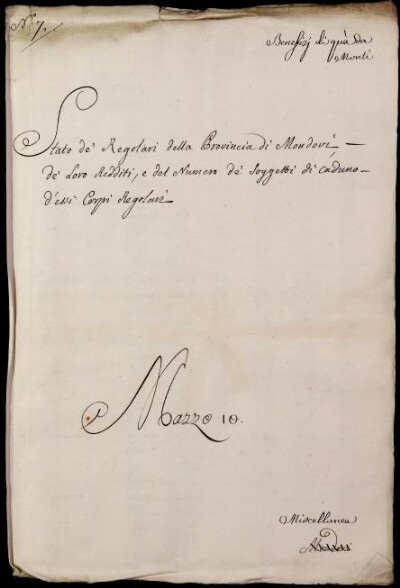 N.° 7.
Benefizj di quà da
Monti
Stato de' Regolari della Provincia di Mondovì –
de' Loro Redditi, e del Numero de' Soggetti di caduno –
d'essi Corpi Regolari
Mazzo 10.
Miscellanea